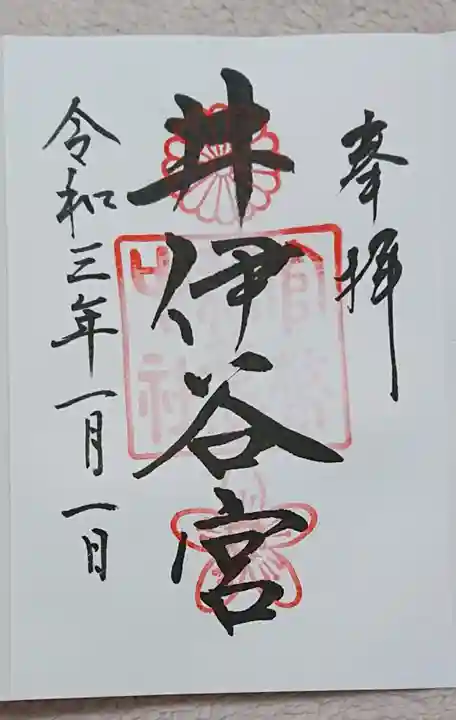 奉拝
井伊谷宮
令和三年一月一日